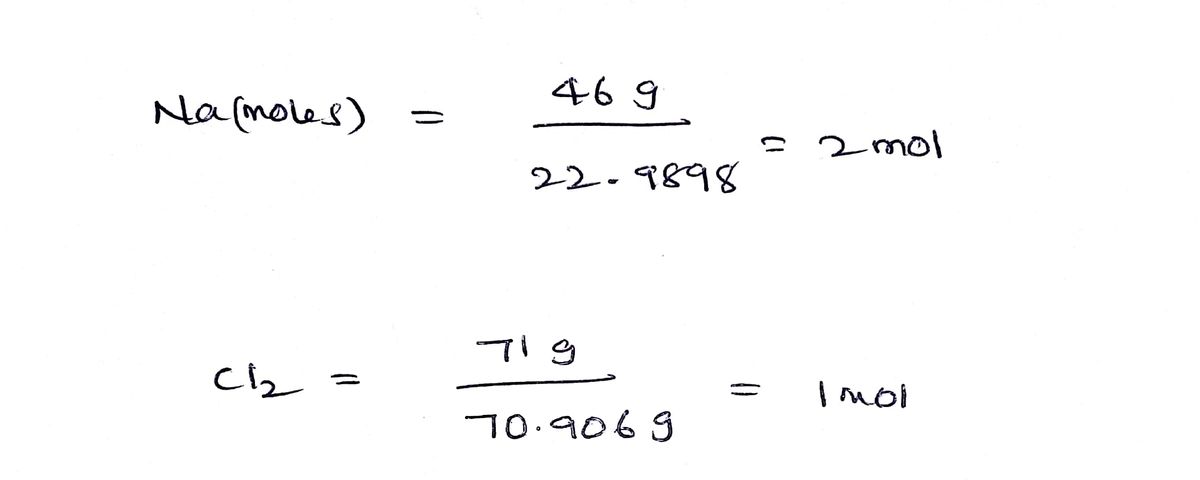 Na(moles) = 46 g / 22.9898 = 2 mol
Cl2 = 71 g / 70.906 g = 1 mol